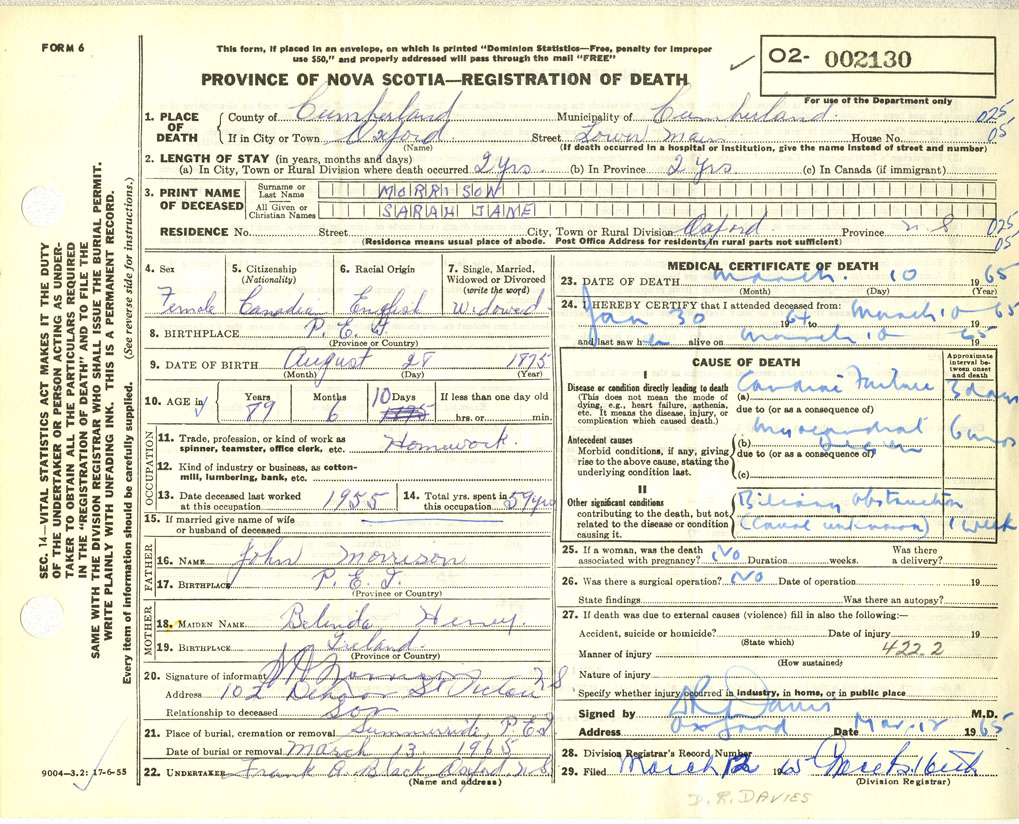 FORM 6
This form, if placed in an envelope, on which is printed "Dominion Statistics—Free, penalty for improper
use $50," and properly addressed will pass through the mail "FREE"
PROVINCE OF NOVA SCOTIA—REGISTRATION OF DEATH
O2- 002130
For use of the Department only
1. PLACE OF DEATH
County of Cumberland Municipality of Cumberland. 025
If in City or Town Oxford. Street Lower Main House No. 05
(Name) (If death occurred in a hospital or institution, give the name instead of street and number)
2. LENGTH OF STAY (in years, months and days)
(a) In City, Town or Rural Division where death occurred 2 yrs. (b) In Province 2 yrs. (c) In Canada (if immigrant)
3. PRINT NAME OF DECEASED
Surname or Last Name MORRISON
All Given or Christian Names SARAH JANE
RESIDENCE No. Street City, Town or Rural Division Oxford. Province N.S 025
(Residence means usual place of abode. Post Office Address for residents in rural parts not sufficient) 05
4. Sex 5. Citizenship (Nationality) 6. Racial Origin 7. Single, Married, Widowed or Divorced (write the word)
Female Canadian English Widowed
8. BIRTHPLACE P.E.I
(Province or Country)
9. DATE OF BIRTH August 28 1875
(Month) (Day) (Year)
10. AGE in Years Months Days If less than one day old
89 6 10 hrs. or min.
OCCUPATION
11. Trade, profession, or kind of work as
spinner, teamster, office clerk, etc. Homework.
12. Kind of industry or business, as cotton-
mill, lumbering, bank, etc.
13. Date deceased last worked at this occupation 1955 14. Total yrs. spent in this occupation 59 yrs
15. If married give name of wife
or husband of deceased
FATHER
16. NAME John Morrison
17. BIRTHPLACE P.E.I.
(Province or Country)
MOTHER
18. MAIDEN NAME Belinda Henry.
19. BIRTHPLACE Ireland.
(Province or Country)
20. Signature of informant
Address 102 St
Relationship to deceased Son
21. Place of burial, cremation or removal Summerside, P.E.I
Date of burial or removal March 13. 1965
22. UNDERTAKER Frank A. Black Oxford N.S.
(Name and address)
MEDICAL CERTIFICATE OF DEATH
23. DATE OF DEATH March. 10 1965
(Month) (Day) (Year)
24. I HEREBY CERTIFY that I attended deceased from:
Jan 30 1964 to March 10 65
and last saw her alive on March 10 1965
CAUSE OF DEATH
Approximate interval between onset and death
I
Disease or condition directly leading to death
(This does not mean the mode of
dying, e.g., heart failure, asthenia,
etc. It means the disease, injury, or
complication which caused death.)
(a) Cardiac Failure 3 days
due to (or as a consequence of)
Antecedent causes
Morbid conditions, if any, giving
rise to the above cause, stating the
underlying condition last.
(b) Myocardial 6 mos
due to (or as a consequence of)
(c)
II
Other significant conditions
contributing to the death, but not
related to the disease or condition
causing it.
Biliary Obstruction
(Cause unknown) 1 week
25. If a woman, was the death associated with pregnancy? No Duration weeks. Was there a delivery?
26. Was there a surgical operation? No Date of operation 19
State findings Was there an autopsy?
27. If death was due to external causes (violence) fill in also the following:—
Accident, suicide or homicide? Date of injury 19
(State which)
Manner of injury 4222
(How sustained)
Nature of injury
Specify whether injury occurred in industry, in home, or in public place
Signed by D R Davies M.D.
Address Oxford Date Mar. 12 1965
28. Division Registrar's Record Number
29. Filed March 12 1965
(Division Registrar)
D. R. DAVIES
SEC. 14—VITAL STATISTICS ACT MAKES IT THE DUTY
OF THE UNDERTAKER OR PERSON ACTING AS UNDER-
TAKER TO OBTAIN ALL THE PARTICULARS REQUIRED
IN THE "REGISTRATION OF DEATH" AND TO FILE THE
SAME WITH THE DIVISION REGISTRAR WHO SHALL ISSUE THE BURIAL PERMIT.
WRITE PLAINLY WITH UNFADING INK. THIS IS A PERMANENT RECORD.
Every item of information should be carefully supplied. (See reverse side for instructions.)
9004-3.2: 17-6-55